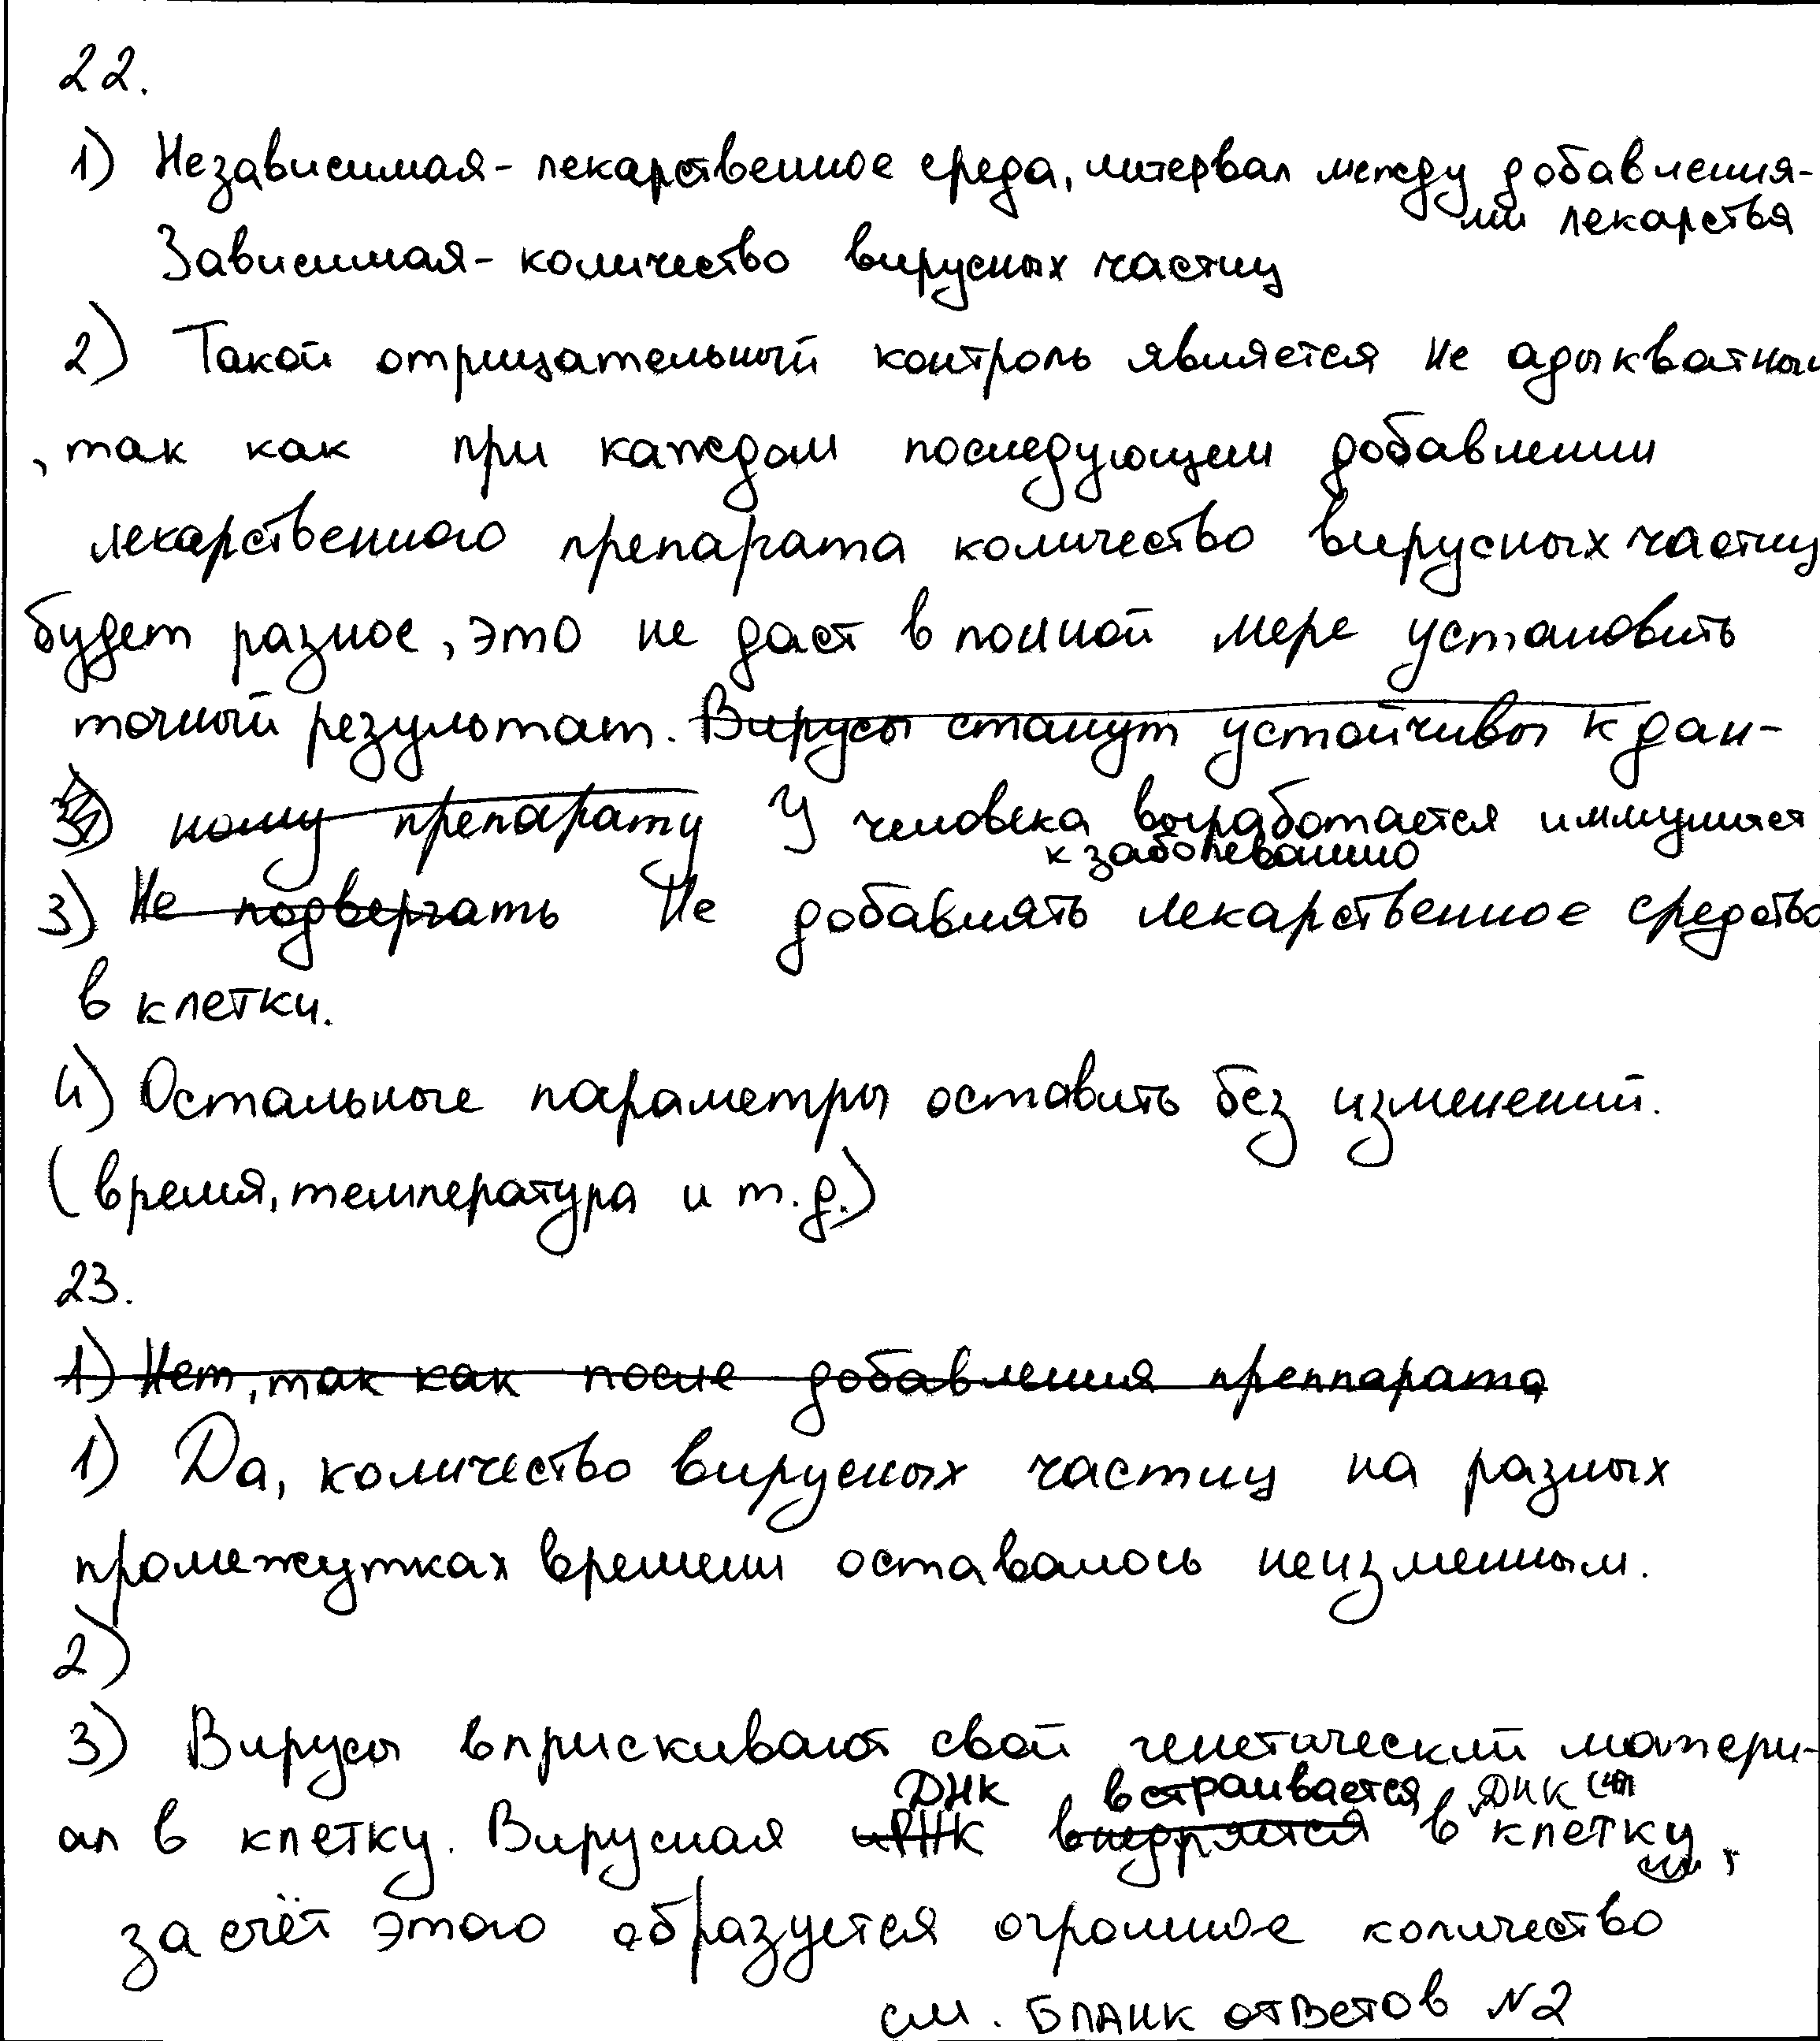 22.
1) Независимая - лекарственное среда, интервал между добавления-
ми лекарства
Зависимая - количество вирусных частиц
2) Такой отрицательный контроль является не адыкватным
, так как при каждом последующем добавлении
лекарственного препарата количество вирусных частиц
будет разное, это не даст в полной мере установить
точный результат. Вирусы станут устойчивы к дан-
ному препарату У человека выработается иммунитет
к заболеванию
3) Не подвергать Не добавлять лекарственное средство
в клетки.
4) Остальные параметры оставить без изменений.
(время, температура и т.д.)
23.
1) Нет, так как после добавления преппарата
1) Да, количество вирусных частиц на разных
промежутках времени оставалось неизменным.
2)
3) Вирусы вприскивают свой генетический матери-
ДНК встраивается ДНК
ал в клетку. Вирусная иРНК внедряется в клетку,
за счёт этого образуется огромное количество
см. БЛАНК ответов №2